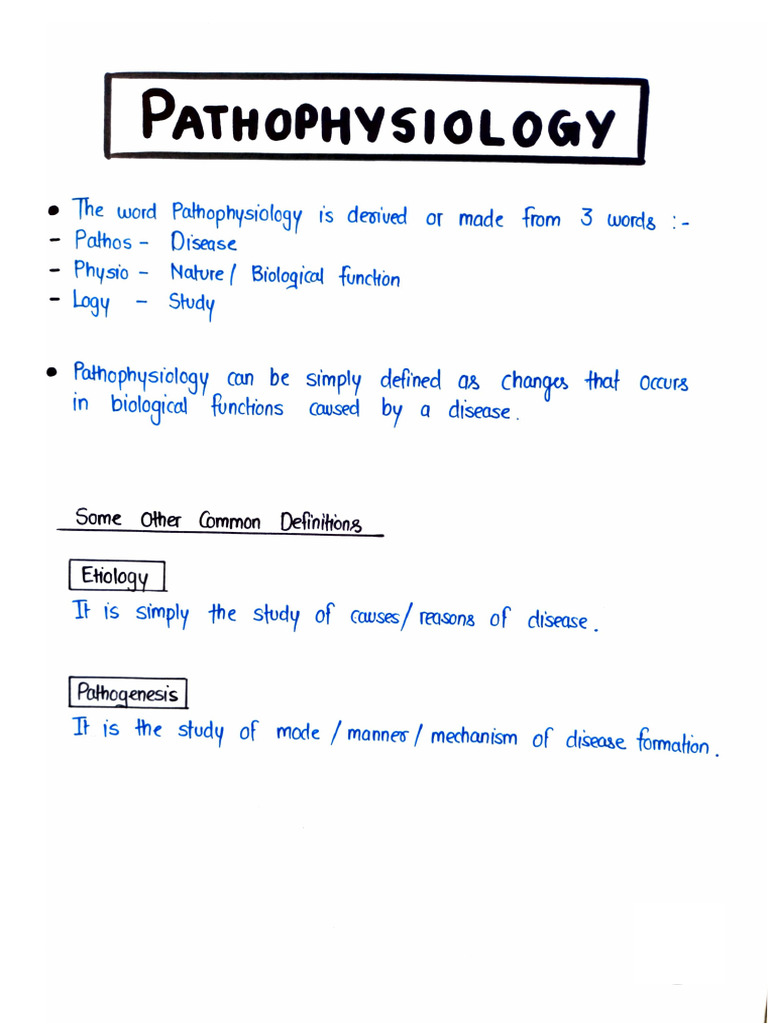 PATHOPHYSIOLOGY
• The word Pathophysiology is derived or made from 3 words :-
- Pathos - Disease
- Physio - Nature/ Biological function
- Logy - Study
• Pathophysiology can be simply defined as changes that occurs
in biological functions caused by a disease.
Some Other Common Definitions
Etiology
It is simply the study of causes/reasons of disease.
Pathogenesis
It is the study of mode/manner/mechanism of disease formation.